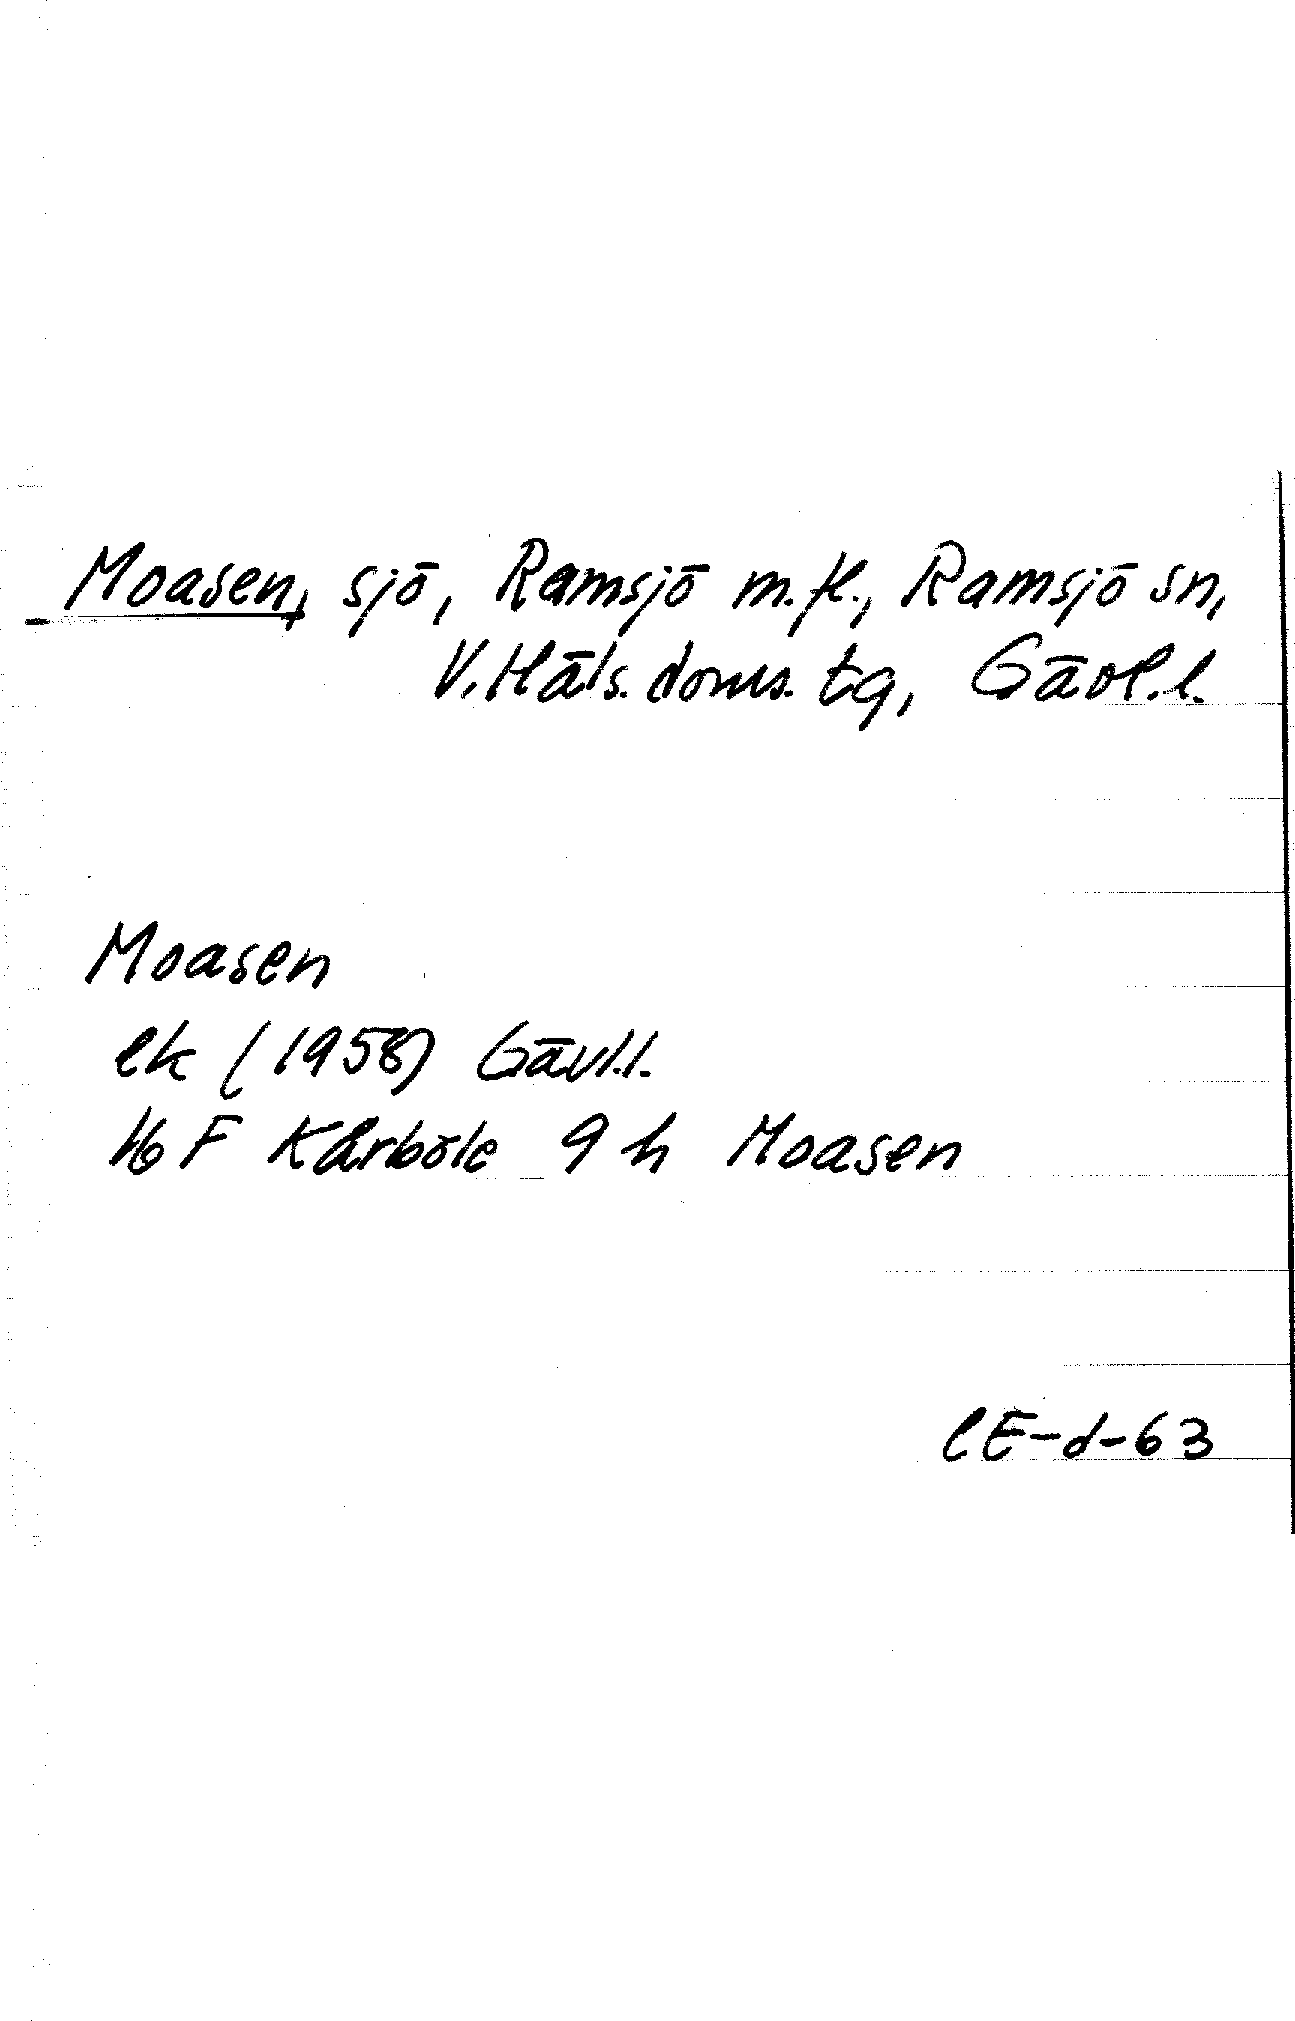 Moasen, sjö, Ramsjö m.fl., Ramsjö sn,
V. Häls. doms. tg, Gävl.l.
Moasen
ek (1958) Gävl.l.
16 F Kårböle 9 h Moasen
CE-d-63